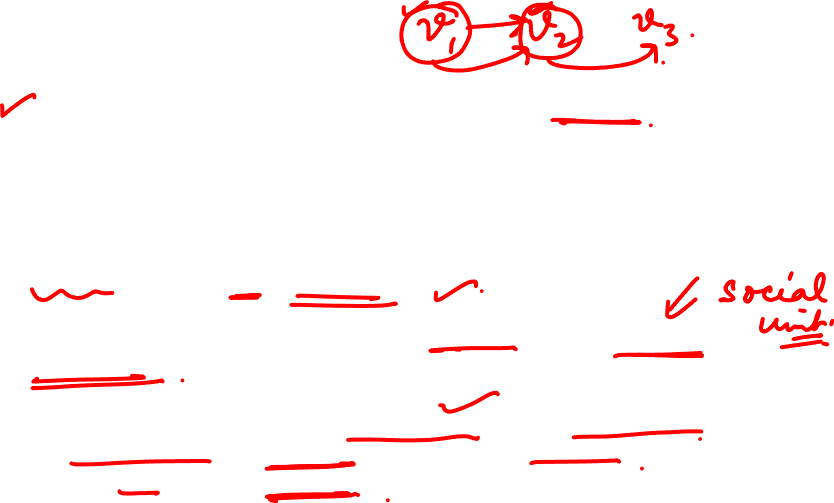 v1 v2 v3
social
unit.